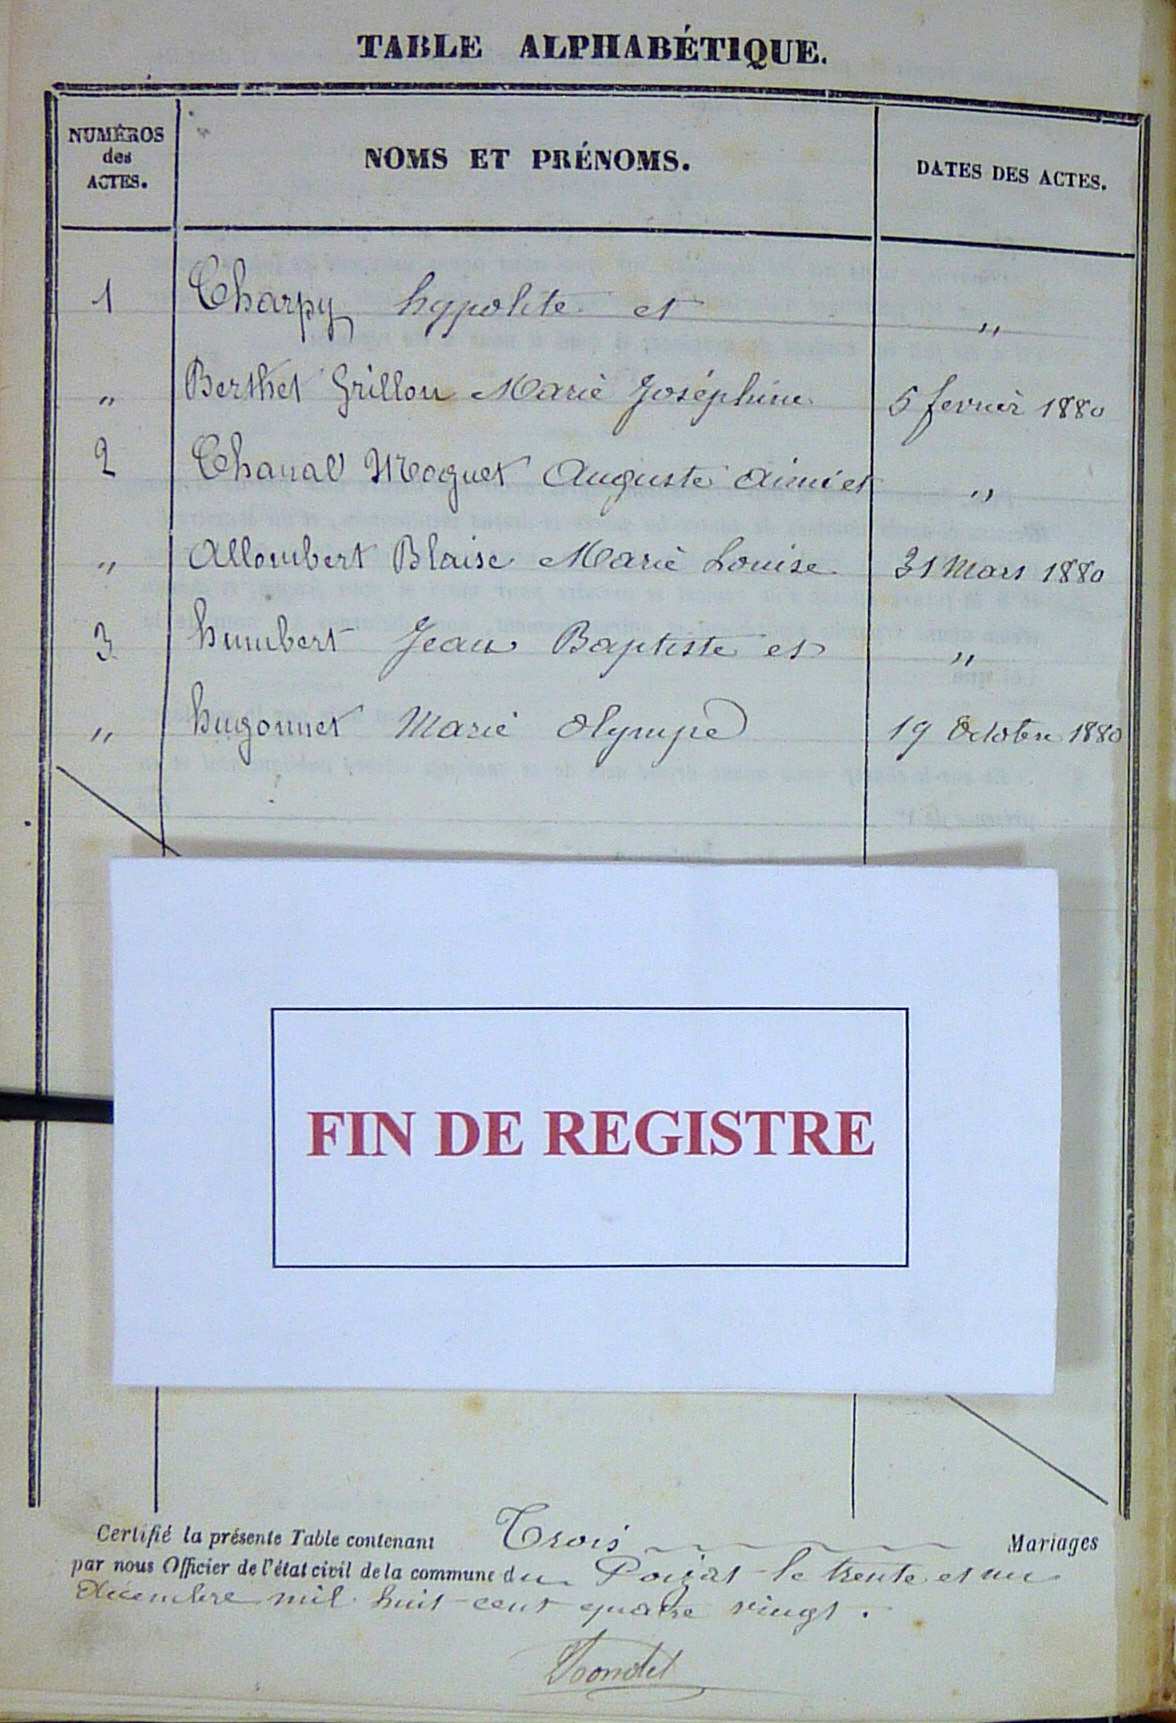 TABLE ALPHABÉTIQUE.
NUMÉROS
des
ACTES.
NOMS ET PRÉNOMS.
DATES DES ACTES.
1 Charpy hypolite et "
" Berthet Grillon Marie Joséphine 5 fevrier 1880
2 Chanal Moguet Auguste Aimé et "
" Allombert Blaise Marie Louise 31 Mars 1880
3 humbert Jean Baptiste et "
" hugonnet Marie Olympe 19 Octobre 1880
FIN DE REGISTRE
Certifié la présente Table contenant Trois Mariages
par nous Officier de l'état civil de la commune du Poizat le trente et un
Décembre mil huit cent quatre vingt.